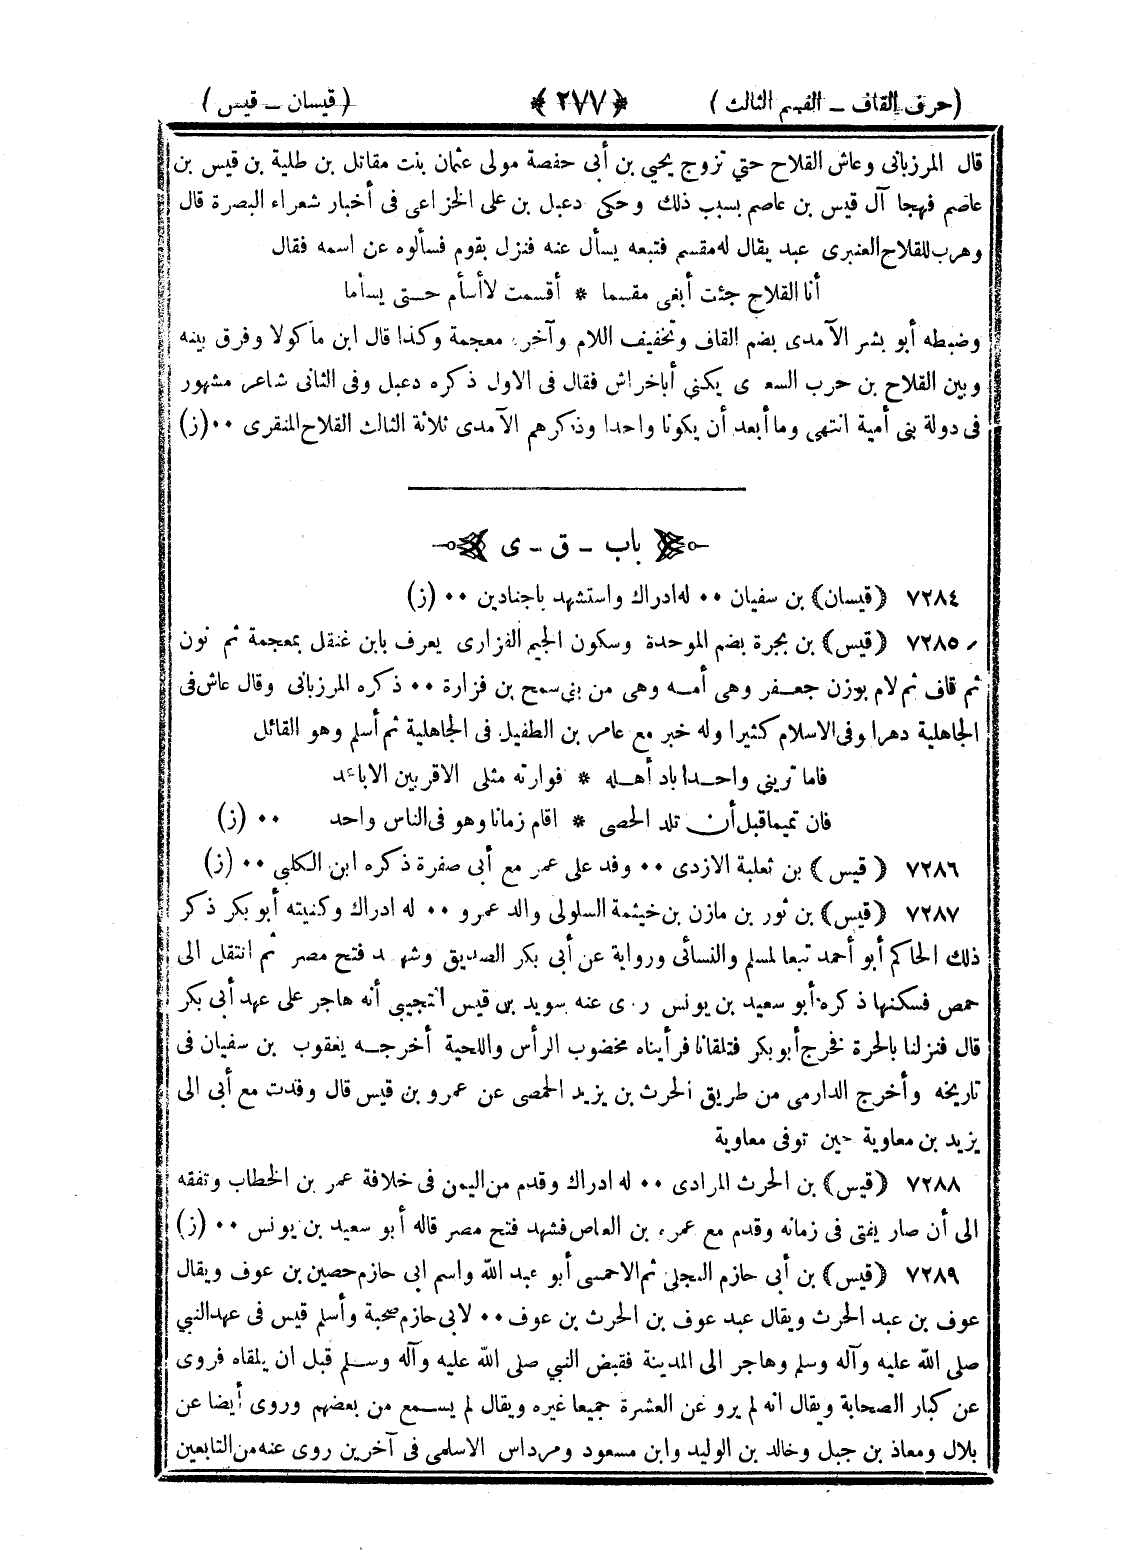 (حرف القاف ـ القسم الثالث) ﴿٢٧٧﴾ (قيسان ـ قيس)
قال المرزبانى وعاش القلاح حتي تزوج يحيي بن أبى حفصة مولى عثمان بنت مقاتل بن طلبة بن قيس بن
عاصم فهجا آل قيس بن عاصم بسبب ذلك وحكى دعبل بن على الخزاعى فى أخبار شعراء البصرة قال
وهرب للقلاح العنبرى عبد يقال له مقسم فتبعه يسأل عنه فنزل بقوم فسألوه عن اسمه فقال
أنا القلاح جئت أبغى مقسما * أقسمت لا أسأم حتى يسأما
وضبطه أبو بشر الآمدى بضم القاف وتخفيف اللام وآخره معجمة وكذا قال ابن ماكولا وفرق بينه
وبين القلاح بن حرب السعدى يكنى أباخراش فقال فى الاول ذكره دعبل وفى الثانى شاعر مشهور
فى دولة بنى أمية انتهى وما أبعد أن يكونا واحدا وذكرهم الآمدى ثلاثة الثالث القلاح المنقرى ٠٠ (ز)
باب ـ ق ـ ى
٧٢٨٤ (قيسان) بن سفيان ٠٠ له ادراك واستشهد باجنادين ٠٠ (ز)
٧٢٨٥ (قيس) بن بجرة بضم الموحدة وسكون الجيم الفزارى يعرف بابن غنقل بمعجمة ثم نون
ثم قاف ثم لام بوزن جعفر وهى أمه وهى من بنى سمح بن فزارة ٠٠ ذكره المرزبانى وقال عاش فى
الجاهلية دهرا وفى الاسلام كثيرا وله خبر مع عامر بن الطفيل فى الجاهلية ثم أسلم وهو القائل
فاما ترينى واحدا باد أهله * فوارثه مثلى الاقربين الاباعد
فان تميما قبل أن تلد الحصى * اقام زمانا وهو فى الناس واحد ٠٠ (ز)
٧٢٨٦ (قيس) بن ثعلبة الازدى ٠٠ وفد على عمر مع أبى صفرة ذكره ابن الكلبى ٠٠ (ز)
٧٢٨٧ (قيس) بن ثور بن مازن بن خيثمة السلولى والد عمرو ٠٠ له ادراك وكنيته أبو بكر ذكر
ذلك الحاكم أبو أحمد تبعا لمسلم والنسائى ورواية عن أبى بكر الصديق وشهد فتح مصر ثم انتقل الى
حمص فسكنها ذكره أبو سعيد بن يونس روى عنه سويد بن قيس التجيبى أنه هاجر على عهد أبى بكر
قال فنزلنا بالحرة فخرج أبو بكر فتلقانا فرأيناه مخضوب الرأس واللحية أخرجه يعقوب بن سفيان فى
تاريخه وأخرج الدارمى من طريق الحرث بن يزيد الحمصى عن عمرو بن قيس قال وفدت مع أبى الى
يزيد بن معاوية حين توفى معاوية
٧٢٨٨ (قيس) بن الحرث المرادى ٠٠ له ادراك وقدم من اليمن فى خلافة عمر بن الخطاب وتفقه
الى أن صار يفتى فى زمانه وقدم مع عمرو بن العاص فشهد فتح مصر قاله أبو سعيد بن يونس ٠٠ (ز)
٧٢٨٩ (قيس) بن أبى حازم البجلى ثم الاحمسى أبو عبد الله واسم ابى حازم حصين بن عوف ويقال
عوف بن عبد الحرث ويقال عبد عوف بن الحرث بن عوف ٠٠ لابى حازم صحبة وأسلم قيس فى عهد النبي
صلى الله عليه وآله وسلم وهاجر الى المدينة فقبض النبي صلى الله عليه وآله وسلم قبل ان يلقاه فروى
عن كبار الصحابة ويقال انه لم يرو عن العشرة جميعا غيره ويقال لم يسمع من بعضهم وروى أيضا عن
بلال ومعاذ بن جبل وخالد بن الوليد وابن مسعود ومرداس الاسلمى فى آخرين روى عنه من التابعين